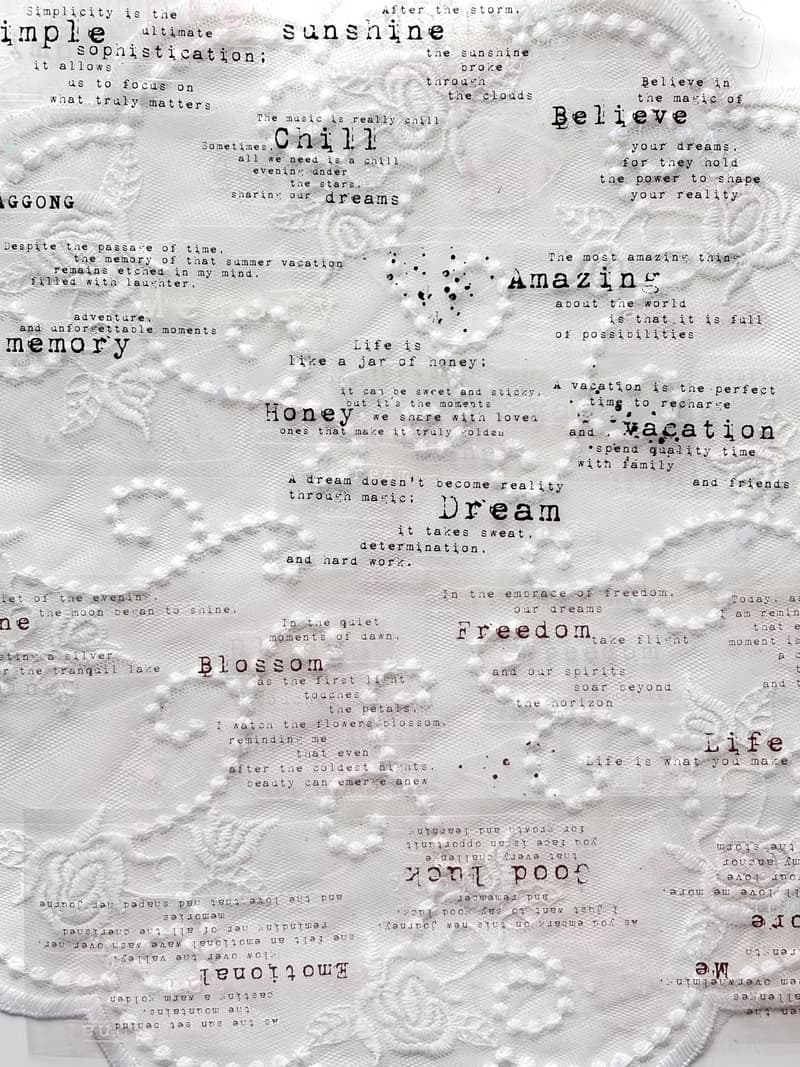 Simplicity is the
imple ultimate
sophistication;
it allows
us to focus on
what truly matters
After the storm,
sunshine
the sunshine
broke
through
the clouds
Believe in
the magic of
Believe
your dreams,
for they hold
the power to shape
your reality
The music is really chill
Sometimes, Chill
all we need is a chill
evening under
the stars,
sharing our dreams
AGGONG
Despite the passage of time,
the memory of that summer vacation
remains etched in my mind,
filled with laughter,
adventure,
and unforgettable moments
memory
The most amazing thing
Amazing
about the world
is that it is full
of possibilities
Life is
like a jar of honey;
it can be sweet and sticky,
but it's the moments
Honey we share with loved
ones that make it truly golden
A vacation is the perfect
time to recharge
and vacation
spend quality time
with family
and friends
A dream doesn't become reality
through magic;
Dream
it takes sweat,
determination,
and hard work.
iet of the evening,
the moon began to shine,
ne
sting a silver
r the tranquil lake
In the quiet
moments of dawn,
Blossom
as the first light
touches
the petals,
I watch the flowers blossom,
reminding me
that even
after the coldest nights,
beauty can emerge anew
In the embrace of freedom,
our dreams
Freedom take flight
and our spirits
soar beyond
the horizon
Today, as
I am remin
that e
moment is
a c
and t
Life
Life is what you make
As you embark on this new journey,
I just want to say good luck,
and remember
Good luck
that every challenge
you face is an opportunit
for growth and learning
As the sun set behind
the mountains,
casting a warm golden
Emotional
glow over the valley,
she felt an emotional wave wash over her,
reminding her of all the cherished
memories
and the love that had shaped her journe
allenges
em overwhelming,
Me
rength
ore
ll love me more,
our love
my anchor
the storm